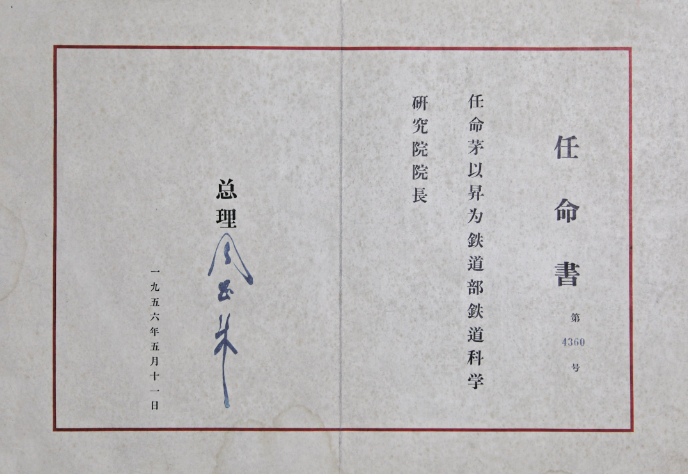 任命書
第
4360
号
任命茅以昇为鉄道部鉄道科学
研究院院長
总理
周恩来
一九五六年五月十一日